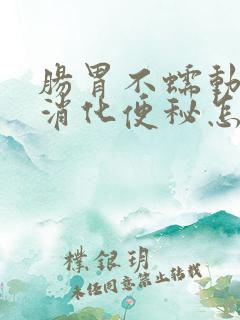 腸胃不蠕動
消化便秘怎
檏銀玥
未任同意禁止转载